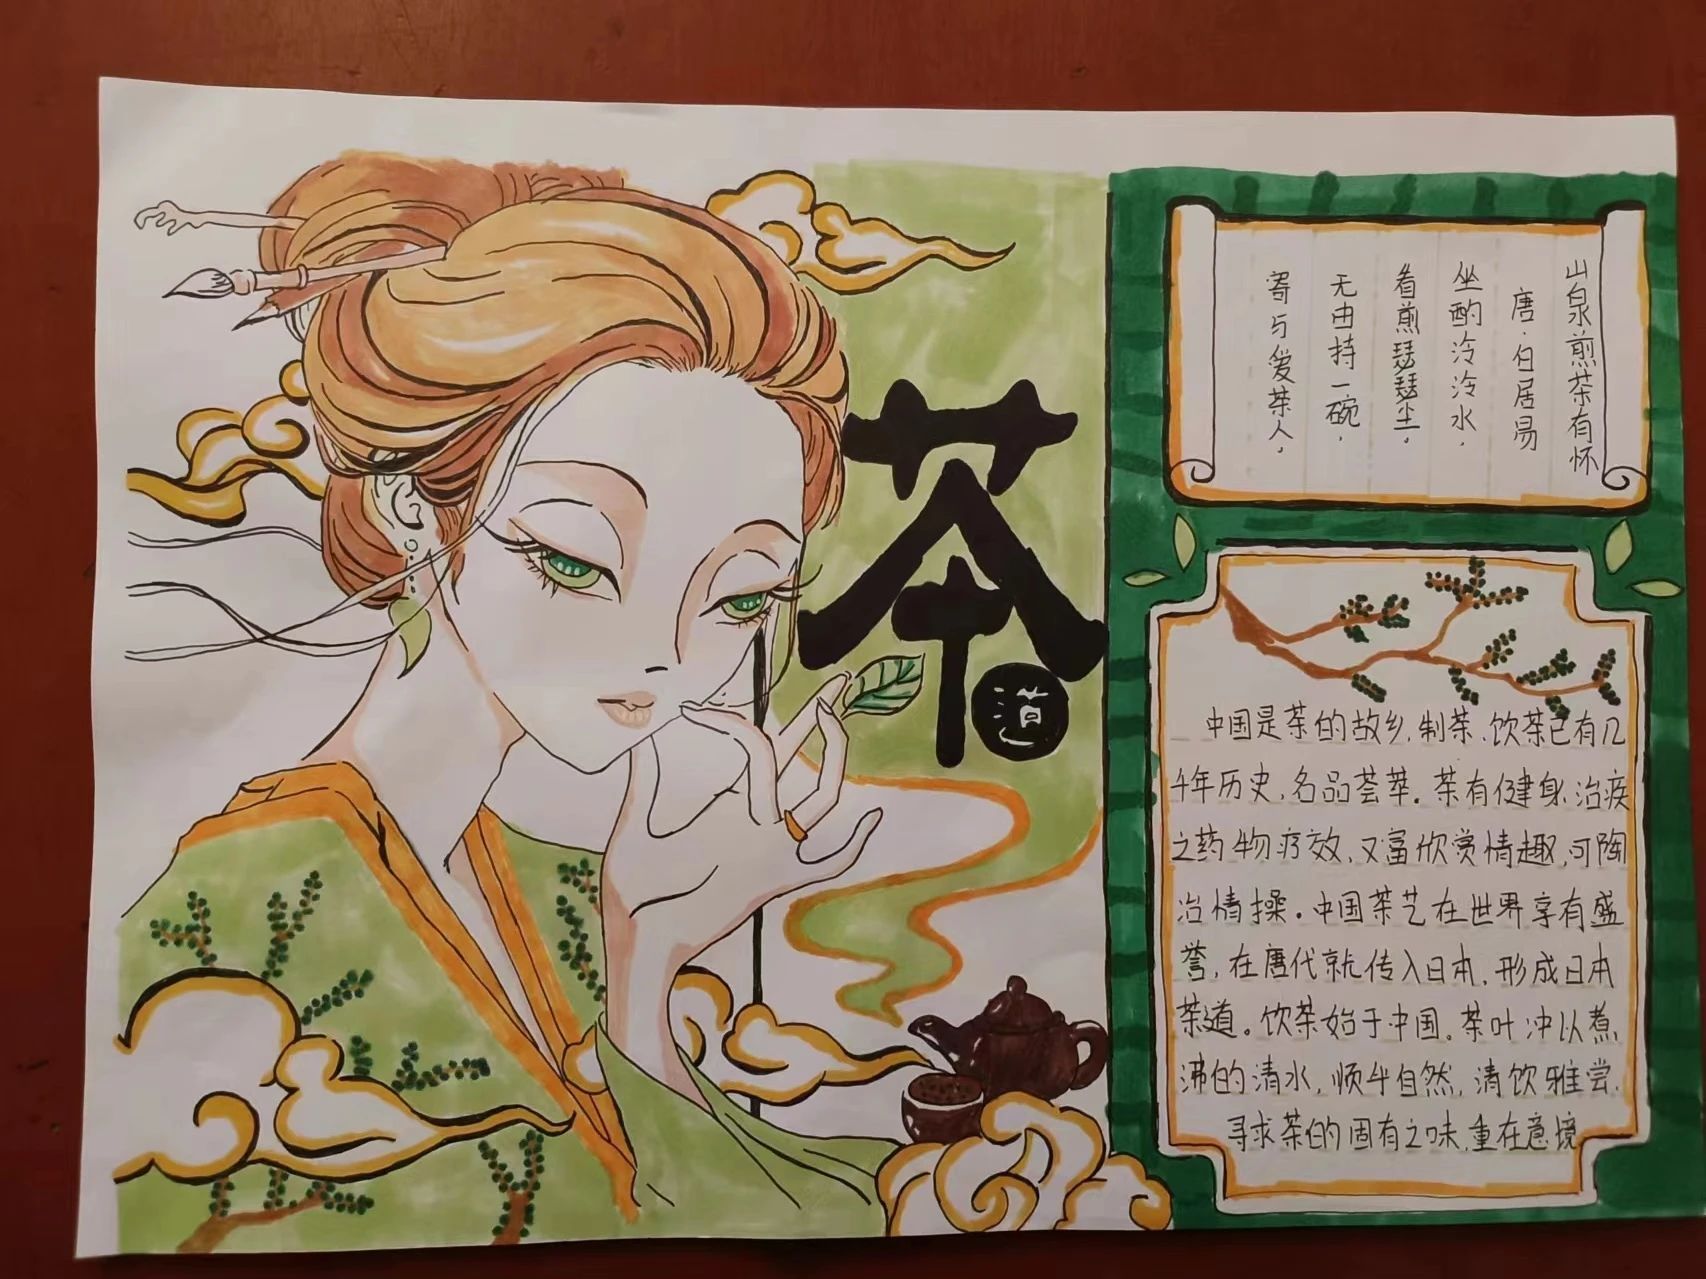 茶
道
山泉煎茶有怀
唐·白居易
坐酌泠泠水，
看煎瑟瑟尘，
无由持一碗，
寄与爱茶人，
中国是茶的故乡，制茶、饮茶已有几
千年历史，名品荟萃。茶有健身、治疾
之药物疗效，又富欣赏情趣，可陶
冶情操。中国茶艺在世界享有盛
誉，在唐代就传入日本，形成日本
茶道。饮茶始于中国。茶叶冲以煮
沸的清水，顺乎自然，清饮雅尝，
寻求茶的固有之味，重在意境